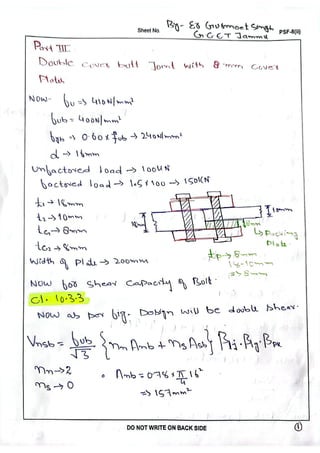 By- Er Gurmeet Singh
Sheet No.
GCCT Jammu
PSF-8(ii)
Part III
Double cover butt Joint with 8mm Cover
Plates
Now- fu => 410N/mm²
fub = 400N/mm²
fyb => 0.60 x fub -> 240N/mm²
d -> 16mm
Unfactored load -> 100kN
factored load -> 1.5 x 100 -> 150kN
t1 -> 18mm
t2 -> 10mm
tc1 -> 8mm
tc2 -> 8mm
18mm
10mm
8mm
Packing
Plate
tp -> 8mm
18-10mm
=> 8mm
Width of Plate -> 200mm
Now for Shear Capacity of Bolt-
Cl. 10.3.3
Now as per fig. Design will be double shear.
Vnsb = fub/√3 {nn Anb + ns Asb} βlj. βlg. βpk
nn -> 2
ns -> 0
Anb = 0.78 x π/4 16²
=> 157mm²
DO NOT WRITE ON BACK SIDE
1